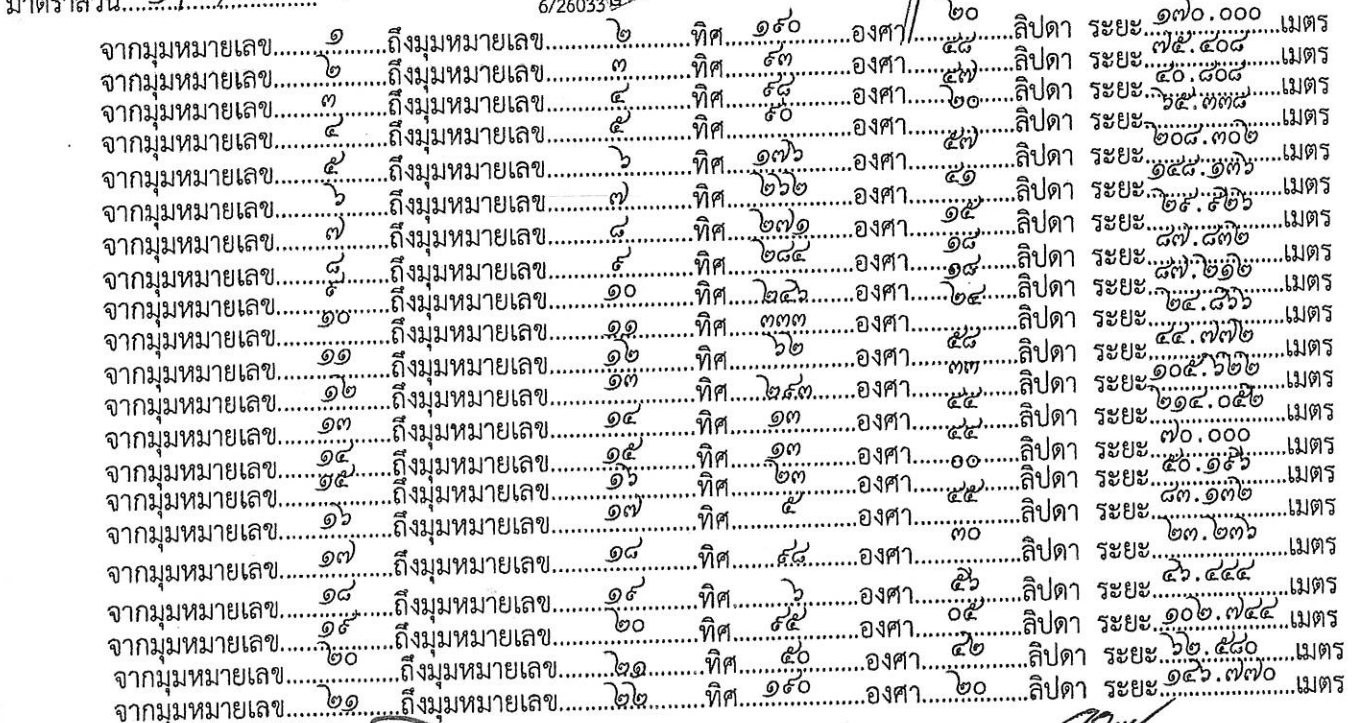 มาตราส่วน
6/26033
จากมุมหมายเลข ๑ ถึงมุมหมายเลข ๒ ทิศ ๑๙๐ องศา ๒๐ ลิปดา ระยะ ๑๗๐.๐๐๐ เมตร
จากมุมหมายเลข ๒ ถึงมุมหมายเลข ๓ ทิศ ๙๓ องศา ๔๘ ลิปดา ระยะ ๗๕.๔๐๘ เมตร
จากมุมหมายเลข ๓ ถึงมุมหมายเลข ๔ ทิศ ๙๘ องศา ๔๗ ลิปดา ระยะ ๔๐.๘๐๘ เมตร
จากมุมหมายเลข ๔ ถึงมุมหมายเลข ๕ ทิศ ๙๐ องศา ๒๐ ลิปดา ระยะ ๖๕.๓๓๘ เมตร
จากมุมหมายเลข ๕ ถึงมุมหมายเลข ๖ ทิศ ๑๗๖ องศา ๕๗ ลิปดา ระยะ ๒๐๘.๓๐๒ เมตร
จากมุมหมายเลข ๖ ถึงมุมหมายเลข ๗ ทิศ ๒๖๒ องศา ๕๑ ลิปดา ระยะ ๑๔๘.๑๓๖ เมตร
จากมุมหมายเลข ๗ ถึงมุมหมายเลข ๘ ทิศ ๒๗๑ องศา ๑๕ ลิปดา ระยะ ๒๙.๙๒๖ เมตร
จากมุมหมายเลข ๘ ถึงมุมหมายเลข ๙ ทิศ ๒๘๔ องศา ๑๘ ลิปดา ระยะ ๘๗.๘๓๒ เมตร
จากมุมหมายเลข ๙ ถึงมุมหมายเลข ๑๐ ทิศ ๒๔๖ องศา ๑๘ ลิปดา ระยะ ๘๗.๒๑๒ เมตร
จากมุมหมายเลข ๑๐ ถึงมุมหมายเลข ๑๑ ทิศ ๓๓๓ องศา ๒๔ ลิปดา ระยะ ๒๔.๘๖๖ เมตร
จากมุมหมายเลข ๑๑ ถึงมุมหมายเลข ๑๒ ทิศ ๖๒ องศา ๕๘ ลิปดา ระยะ ๔๔.๗๗๒ เมตร
จากมุมหมายเลข ๑๒ ถึงมุมหมายเลข ๑๓ ทิศ ๒๙๓ องศา ๓๓ ลิปดา ระยะ ๑๐๕.๖๒๒ เมตร
จากมุมหมายเลข ๑๓ ถึงมุมหมายเลข ๑๔ ทิศ ๑๓ องศา ๔๕ ลิปดา ระยะ ๒๑๔.๐๕๒ เมตร
จากมุมหมายเลข ๑๔ ถึงมุมหมายเลข ๑๕ ทิศ ๑๓ องศา ๔๔ ลิปดา ระยะ ๗๐.๐๐๐ เมตร
จากมุมหมายเลข ๑๕ ถึงมุมหมายเลข ๑๖ ทิศ ๒๓ องศา ๐๐ ลิปดา ระยะ ๕๐.๑๙๖ เมตร
จากมุมหมายเลข ๑๖ ถึงมุมหมายเลข ๑๗ ทิศ ๕ องศา ๔๕ ลิปดา ระยะ ๘๓.๑๓๒ เมตร
จากมุมหมายเลข ๑๗ ถึงมุมหมายเลข ๑๘ ทิศ ๙๘ องศา ๓๐ ลิปดา ระยะ ๒๓.๒๓๖ เมตร
จากมุมหมายเลข ๑๘ ถึงมุมหมายเลข ๑๙ ทิศ ๖ องศา ๕๖ ลิปดา ระยะ ๕๖.๔๔๔ เมตร
จากมุมหมายเลข ๑๙ ถึงมุมหมายเลข ๒๐ ทิศ ๙๕ องศา ๐๕ ลิปดา ระยะ ๑๐๒.๗๔๔ เมตร
จากมุมหมายเลข ๒๐ ถึงมุมหมายเลข ๒๑ ทิศ ๕๐ องศา ๔๒ ลิปดา ระยะ ๖๒.๕๘๐ เมตร
จากมุมหมายเลข ๒๑ ถึงมุมหมายเลข ๒๒ ทิศ ๑๙๐ องศา ๒๐ ลิปดา ระยะ ๑๔๖.๗๗๐ เมตร